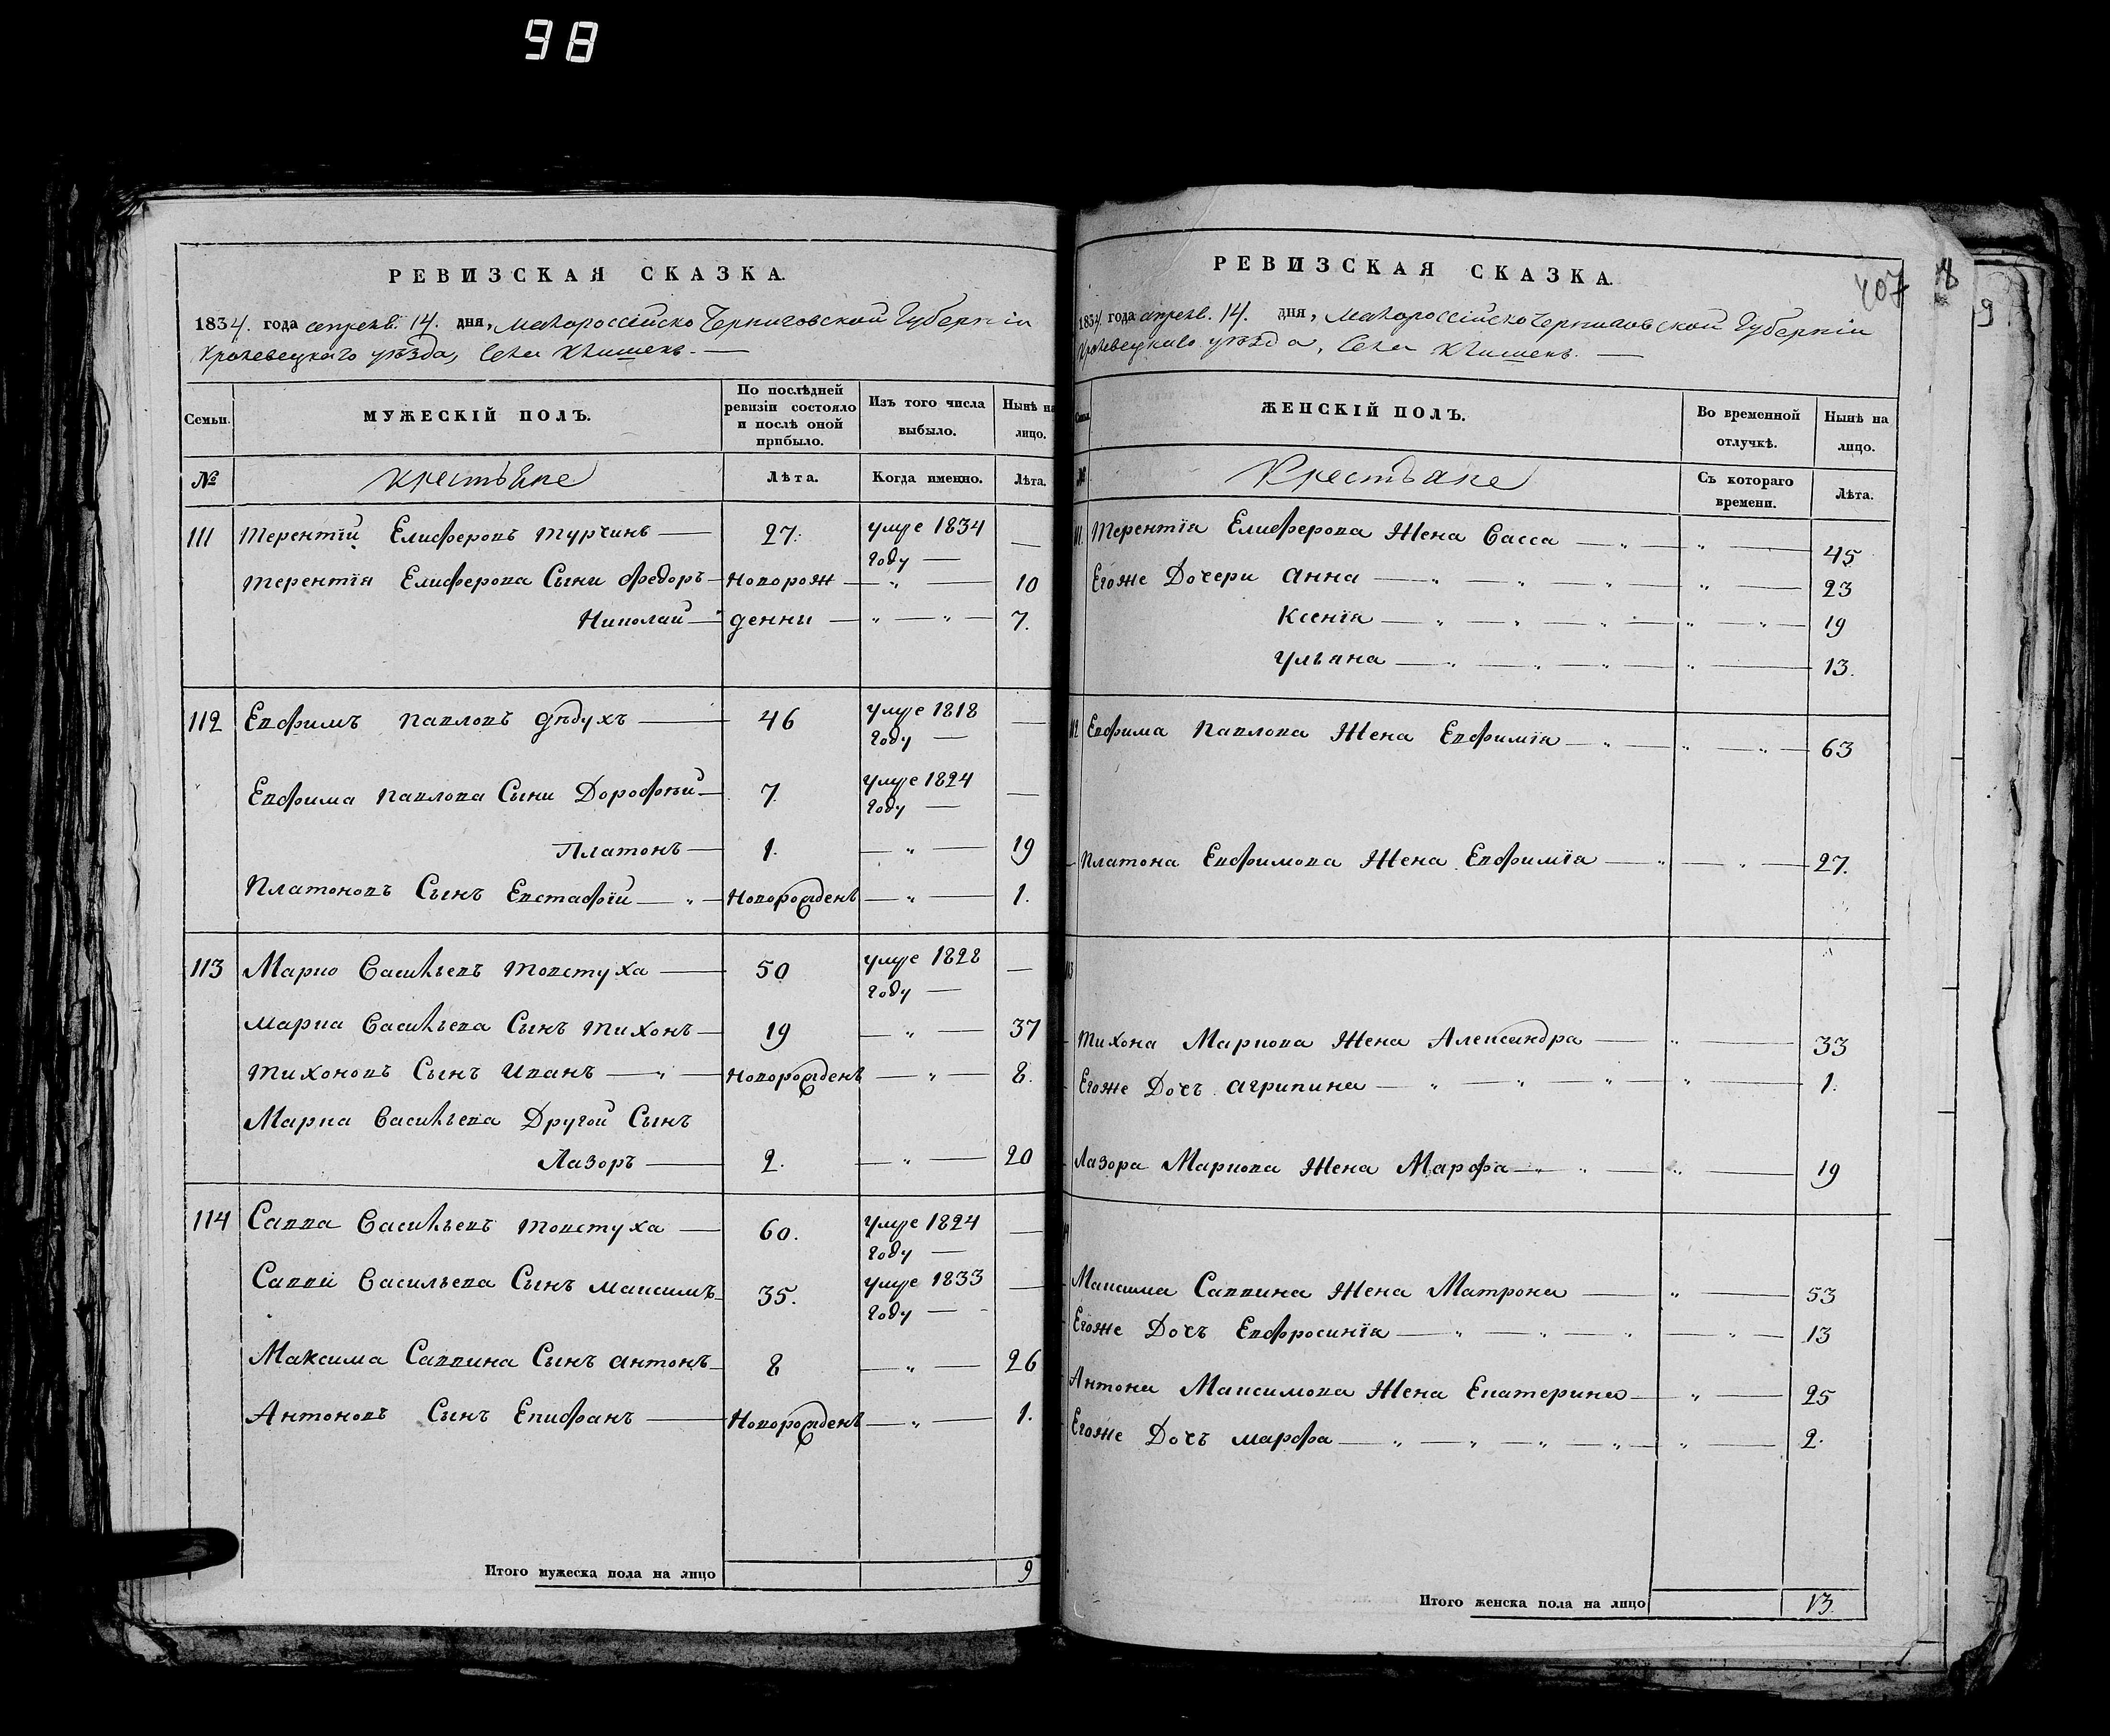 98
РЕВИЗСКАЯ СКАЗКА.
1834. года апреля. 14. дня, Малороссійско Черниговской Губерніи
Кролевецкаго уѣзда, Села Клишекъ. —
Семьи.
МУЖЕСКІЙ ПОЛЪ.
По послѣдней ревизіи состояло и послѣ оной прибыло.
Изъ того числа выбыло.
Нынѣ на лицо.
№
Крестьяне
Лѣта.
Когда именно.
Лѣта.
111 Терентій Елисферовъ Турчинъ — 27. умре 1834 году — —
Терентія Елисферова Сыни Федоръ — Новорож — „ — 10
Николай — денни — „ — „ — 7.
112 Евфимъ Павловъ Дѣдухъ — 46 умре 1818 году — —
Евфима Павлова Сыни Дорофѣй — 7. умре 1824 году — —
Платонъ — 1. — „ — 19
Платоновъ Сынъ Евстафій — „ — Новорожденъ — „ — 1.
113 Марко Васильевъ Товстуха — 50 умре 1828 году — —
Марка Васильева Сынъ Тихонъ — 19 — „ — 37
Тихоновъ Сынъ Иванъ — „ — Новорожденъ — „ — 8.
Марка Васильева Другой Сынъ
Лазоръ — 2. — „ — 20
114 Савва Васильевъ Товстуха — 60. умре 1824 году — —
Саввы Васильева Сынъ Максимъ — 35. умре 1833 году — —
Максима Саввина Сынъ Антонъ — 8 — „ — 26
Антоновъ Сынъ Епифанъ — Новорожденъ — „ — 1.
Итого мужеска пола на лицо 9
407
РЕВИЗСКАЯ СКАЗКА.
1834. года апреля. 14. дня, Малороссійско Черниговской Губерніи
Кролевецкаго уѣзда, Села Клишекъ. —
Семьи.
ЖЕНСКІЙ ПОЛЪ.
Во временной отлучкѣ.
Нынѣ на лицо.
№
Крестьяне
Съ котораго времени.
Лѣта.
111. Терентія Елисферова Жена Васса — „ — „ — 45
Егоже Дочери Анна — „ — „ — „ — „ — 23
Ксенія — „ — „ — „ — „ — „ — 19
Ульяна — „ — „ — „ — „ — 13.
112 Евфима Павлова Жена Евфимія — „ — „ — „ — 63
Платона Евфимова Жена Евфимія — „ — „ — 27.
113
Тихона Маркова Жена Александра — „ — 33
Егоже Дочъ Агрипина — „ — „ — „ — „ — 1.
Лазора Маркова Жена Марфа — „ „ — „ — 19
Максима Саввина Жена Матрона — „ — 53
Егоже Дочъ Евфросинія — „ — „ — „ — „ — 13
Антона Максимова Жена Екатерина — „ — 25
Егоже Дочъ Марфа — „ — „ — „ — „ — „ — 2.
Итого женска пола на лицо 13.
9